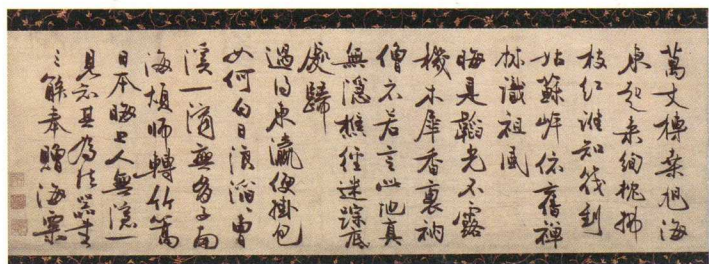 萬丈榑桑旭海
東起来絢拂
枝紅誰知筏到
姑蘇岸依舊禅
林識祖風
晦是韜光不露
機木犀香裏衲
僧衣若言此地真
無隱樵徑迷踪底
處歸
過得東瀛便掛包
如何白日浪滔〻曹
溪一滴無多子南
海煩師轉竹篙
日本晦上人無隱一
見知其為法器書
三絶奉贈海粟